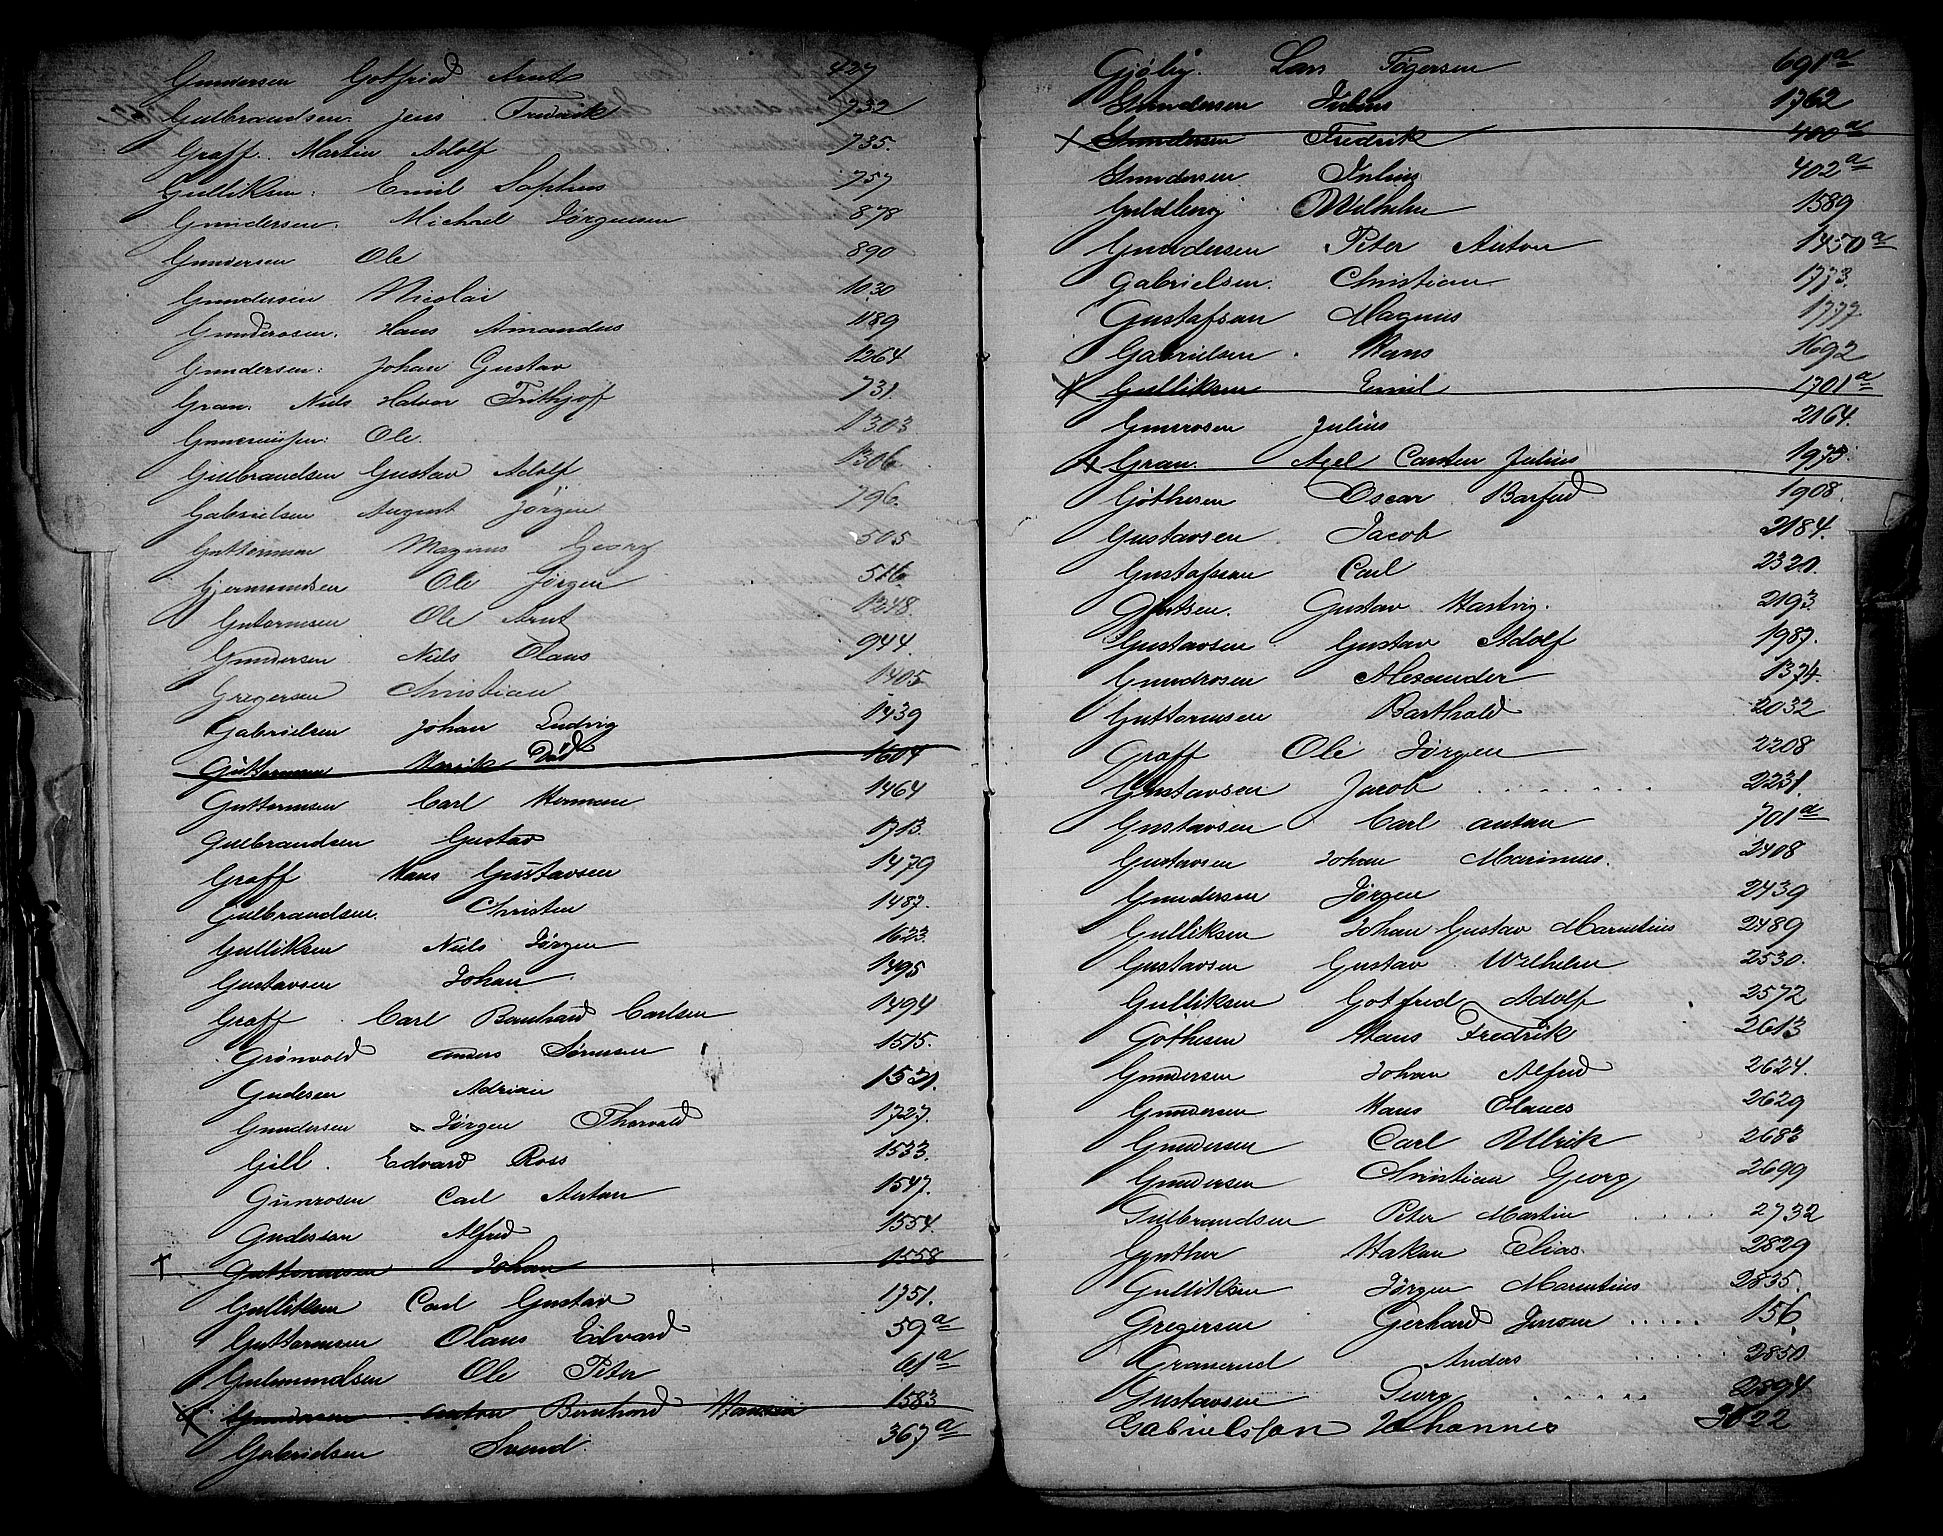 Gundersen Gotfried Arnt 427
Gulbrandsen. Jens Fredrik 732
Graff. Martin Adolf 735.
Gulliksen. Emil Sophus 757
Gundersen. Michael Jørgensen 878
Gundersen Ole 890
Gundersen Nicolai 1030
Gunderosen. Hans Amandus 1189
Gundersen. Johan Gustav 1264
Gran. Niels Halvor Frithjof 731.
Ole. 1303
Gulbrandsen Gustav Adolf 1306
Gabrielsen August Jørgen 796.
Guttormsen Magnus Georg 505
Gjermundsen Ole Jørgen 516.
Gutormsen Ole Arnt 1248.
Gundersen Niels Olaus 944.
Gregersen Christian 1405
Gabrielsen Johan Ludvig 1439
Guttormsen Henrik Død 1604
Guttormsen Carl Herman 1464
Gulbrandsen Gustav 1713.
Graff Hans Gustavsen 1479
Gulbrandsen. Christen 1487.
Gulliksen Niels Jørgen 1623.
Gustavsen Johan 1495
Graff. Carl Bernhard Carlsen 1494
Grønvold Anders Sørensen 1515.
Gudesen Adrian 1531.
Gundersen Jørgen Thorvald 1727.
Gill. Edvard Ross 1533.
Gunrosen Carl Anton 1547.
Gudesson Alfred 1554.
Guttormsen Johan 1558
Gulliksen Carl Gustav 1751.
Guttormsen Olaus Edvard 59a
Gulmundsen Ole Peter 61a
X Gundersen Anton Bernhard Hansen 1583
Gabrielsen Svend 367a
Gjøby. Lars Tøgersen 691a
Gundersen Julius 1762
X Gundersen Fredrik 400a
Gundersen Julius 402a
Guldberg Wilhelm 1589
Gundersen Peter Anton 1450a
Gabrielsen. Christian 1773.
Gustafsen Magnus 1777.
Gabrielsen. Hans 1692
X Gulliksen Emil 1701a
Gunerosen Julius 2164.
X Gran. Axel Carsten Julius 1975.
Gøthesen Oscar Barfød 1908.
Gustavsen. Jacob 2184.
Gustafsson Carl 2320.
Gustav Hartvig. 2193.
Gustavsen Gustav Adolf 1987.
Gundrosen Alexander 1374.
Guttormsen Barthold 2032
Graff Ole Jørgen 2208
Gustavsen Jacob 2231.
Gustavsen Carl Anton 701a
Gustavsen Johan Marinius. 2408
Gundersen Jørgen 2439
Gulliksen Johan Gustav Marentius 2489
Gustavsen Gustav Wilhelm 2530.
Gulliksen Gotfred Adolf 2572
Gøthesen Hans Fredrik 2613
Gundersen Johan Alfred 2624.
Gundersen Hans Olaves 2629
Gundersen Carl Ulrik 2683
Gundersen Christian Georg 2699
Gulbrandsen Peter Martin 2732
Gynther Hakan Elias. 2829
Gulliksen Jørgen Marentius 2835.
Gregersen Gerhard Jenson 156.
Granerud Anders 2850
Gustavsen Georg 2894
Gabrielsson Johannes 3022